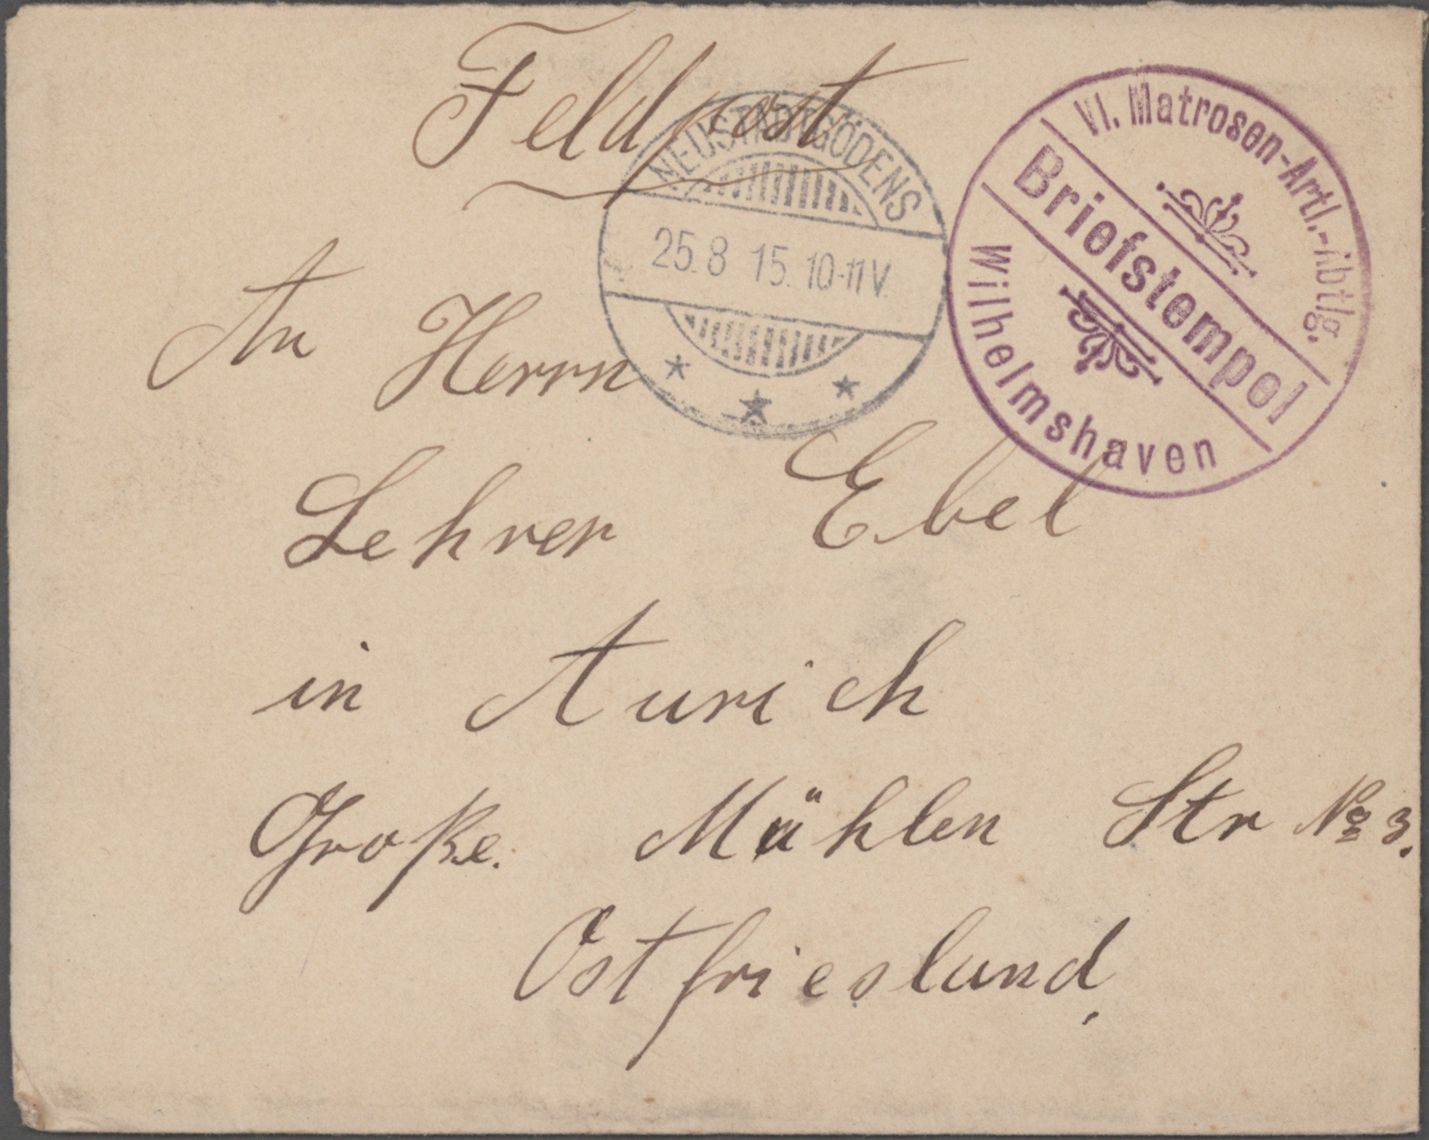 Feldpost
NEUSTADTGÖDENS
25.8 15. 10-11 V.
VI. Matrosen-Artl.-Abtlg.
Briefstempel
Wilhelmshaven
An Herrn
Lehrer Ebel
in Aurich
Große. Mühlen Str No 3.
Ostfriesland,